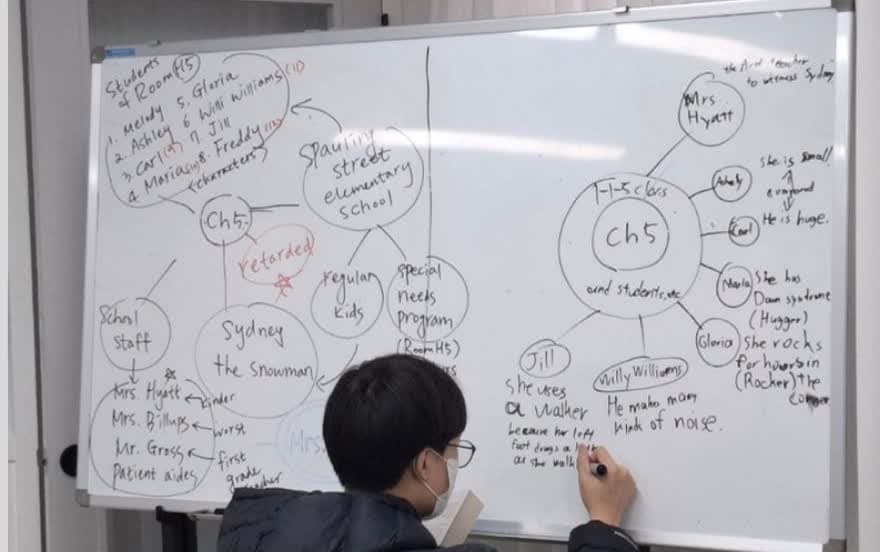 Students
of Room H5
1. Melody 5. Gloria
2. Ashley 6 Willi Williams (11)
3. Carl (9) 7. Jill
4. Maria 8. Freddy (12)
(characters)
Spauling
street
elementary
school
Ch5.
retarded
regular
kids
special
needs
program
(Room H5)
School
staff
Sydney
the snowman
Mrs. Hyatt
kinder
Mrs. Billups
worst
Mr. Gross
first
grade
Patient aides
Mrs.
to witness Sydney
Mrs
Hyatt
1-1-5 class
Ch5
and students, etc
Ashely
she is small
compared
Carl
He is huge.
Maria
She has
Down syndrome
(Hugger)
Gloria
She rocks
for hours in
(Rocker) the
corner
Jill
She uses
a walker
because her left
foot drags a
as she walk
Willy Williams
He make many
kind of noise.